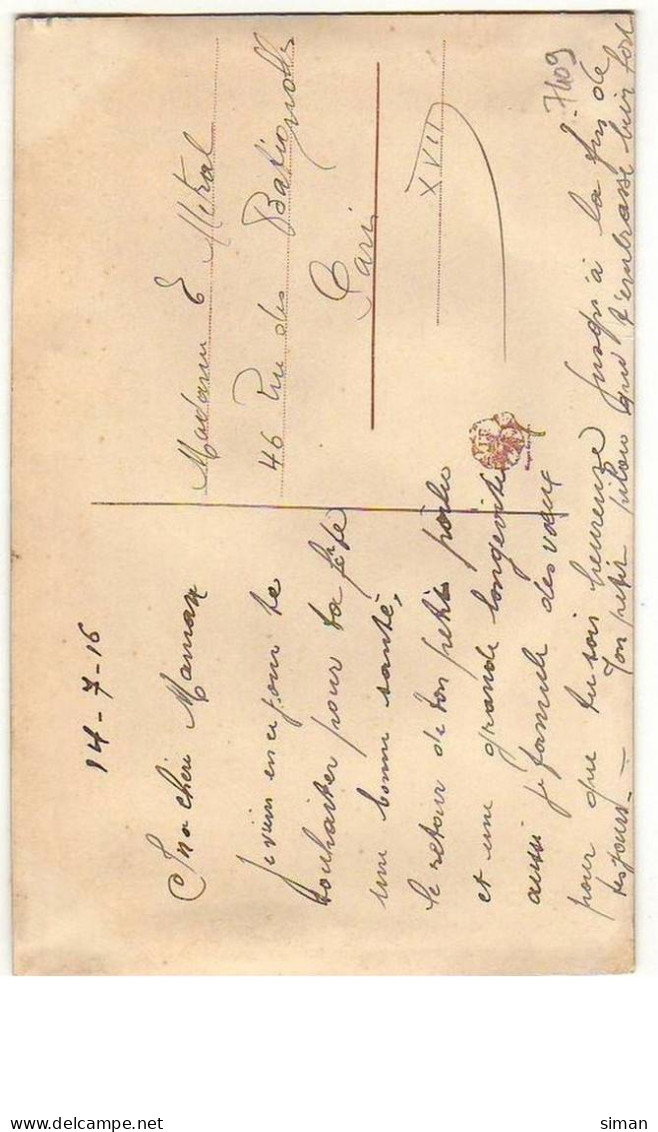 14-7-16
Ma chéri Maman
Je viens en ce jour te
souhaiter pour ta fête
une bonne santé,
le retour de ton petit poilu
et une grande longevité
aussi je formule des vœux
pour que tu sois heureuse jusqu'à la fin de
tes jours. —
Ton petit pilou qui t'embrasse bien fort
Madame E Metral
46 Rue des Batignolles
Paris
XVII
7409
siman